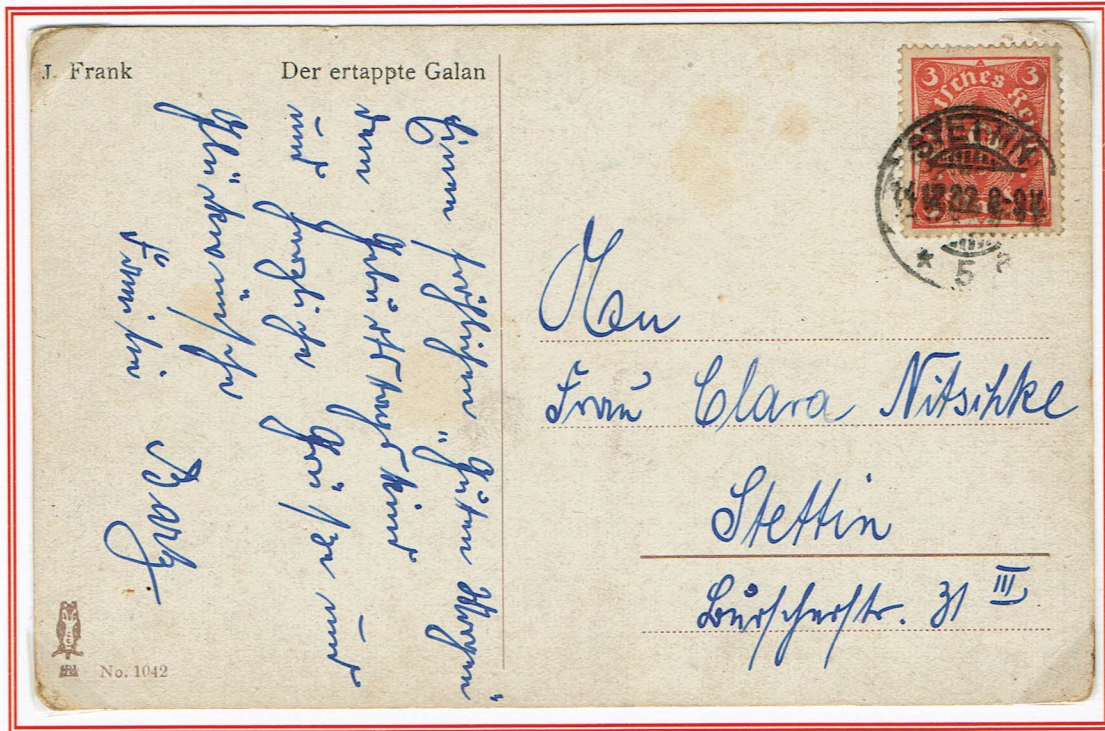 J. Frank
Der ertappte Galan
Einen fröhlichen „Guten Morgen“
dem Geburtstagskind —
und herzliche Grüße und
Glückwünsche
Familie Barz
No. 1042
3 3
Deutsches Reich
STETTIN
14.12.22. 8-9 V.
* 5 *
An
Frau Clara Nitschke
Stettin
Burscherstr. 31 III